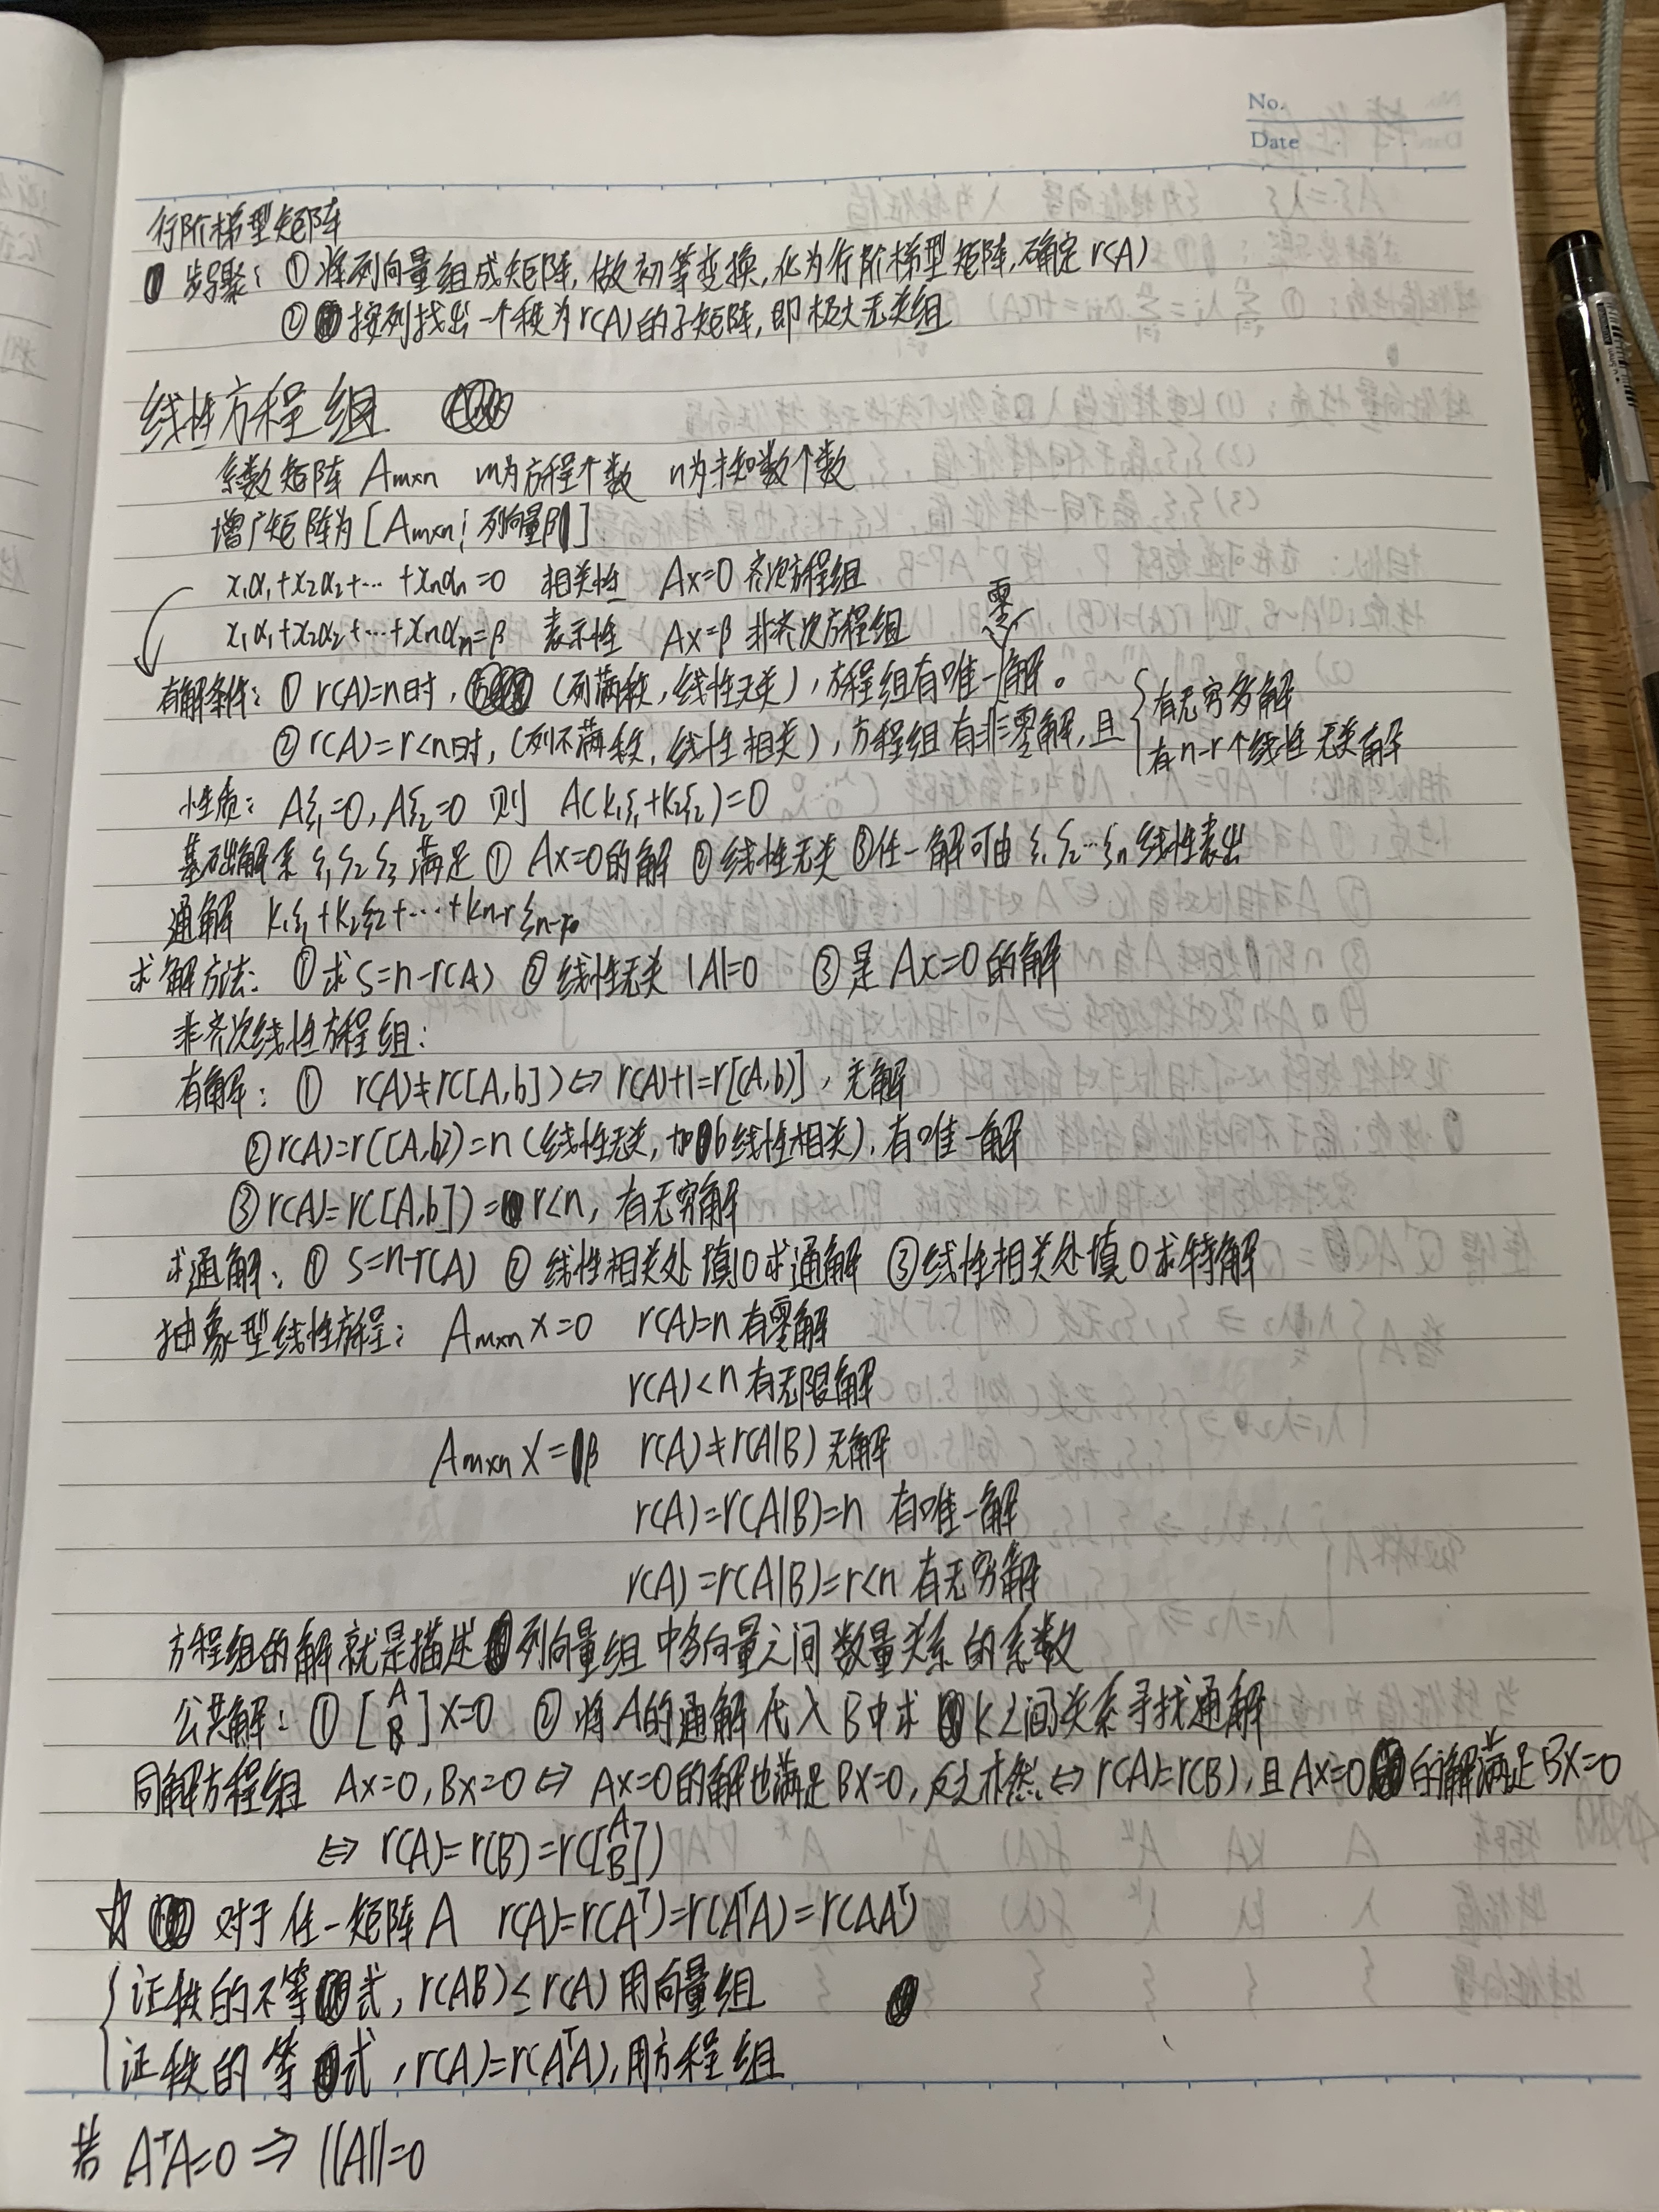 No.
Date
行阶梯型矩阵
步骤：① 将列向量组成矩阵，做初等变换，化为行阶梯型矩阵，确定r(A)
② 按列找出一个秩为r(A)的子矩阵，即极大无关组
线性方程组
系数矩阵 Am×n m为方程个数 n为未知数个数
增广矩阵为[Am×n¦列向量β]
x₁α₁+x₂α₂+…+xnαn=0 相关性 Ax=0 齐次方程组
零
x₁α₁+x₂α₂+…+xnαn=β 表示性 Ax=β 非齐次方程组
有解条件：① r(A)=n时，（列满秩，线性无关），方程组有唯一解。
② r(A)=r<n时，（列不满秩，线性相关），方程组有非零解，且 { 有无穷多解
有n-r个线性无关解
性质：Aξ₁=0, Aξ₂=0 则 A(k₁ξ₁+k₂ξ₂)=0
基础解系 ξ₁ ξ₂ ξ₃ 满足 ① Ax=0的解 ② 线性无关 ③任一解可由 ξ₁ ξ₂…ξn 线性表出
通解 k₁ξ₁+k₂ξ₂+…+kn-rξn-r。
求解方法：① 求S=n-r(A) ② 线性无关 |A|=0 ③ 是Ax=0的解
非齐次线性方程组：
有解：① r(A)≠r([A,b])⇔r(A)+1=r[(A,b)]，无解
② r(A)=r([A,b])=n（线性无关，加b线性相关），有唯一解
③ r(A)=r([A,b])=r<n，有无穷解
求通解：① S=n-r(A) ② 线性相关处填10求通解 ③线性相关处填0求特解
抽象型线性方程：Am×n x=0 r(A)=n 有零解
r(A)<n 有无限解
Am×n X=β r(A)≠r(A|B) 无解
r(A)=r(A|B)=n 有唯一解
r(A)=r(A|B)=r<n 有无穷解
方程组的解就是描述列向量组中各向量之间数量关系的系数
公共解：① [A B]X=0 ② 将A的通解代入B中求k之间关系寻找通解
同解方程组 Ax=0, Bx=0 ⇔ Ax=0的解也满足BX=0，反之亦然⇔r(A)=r(B)，且AX=0的解满足BX=0
⇔ r(A)=r(B)=r([A B])
☆ 对于任一矩阵A r(A)=r(Aᵀ)=r(AᵀA)=r(AAᵀ)
{ 证秩的不等式，r(AB)≤r(A) 用向量组
证秩的等式，r(A)=r(AᵀA)，用方程组
若 AᵀA=0 ⇒ ||A||=0